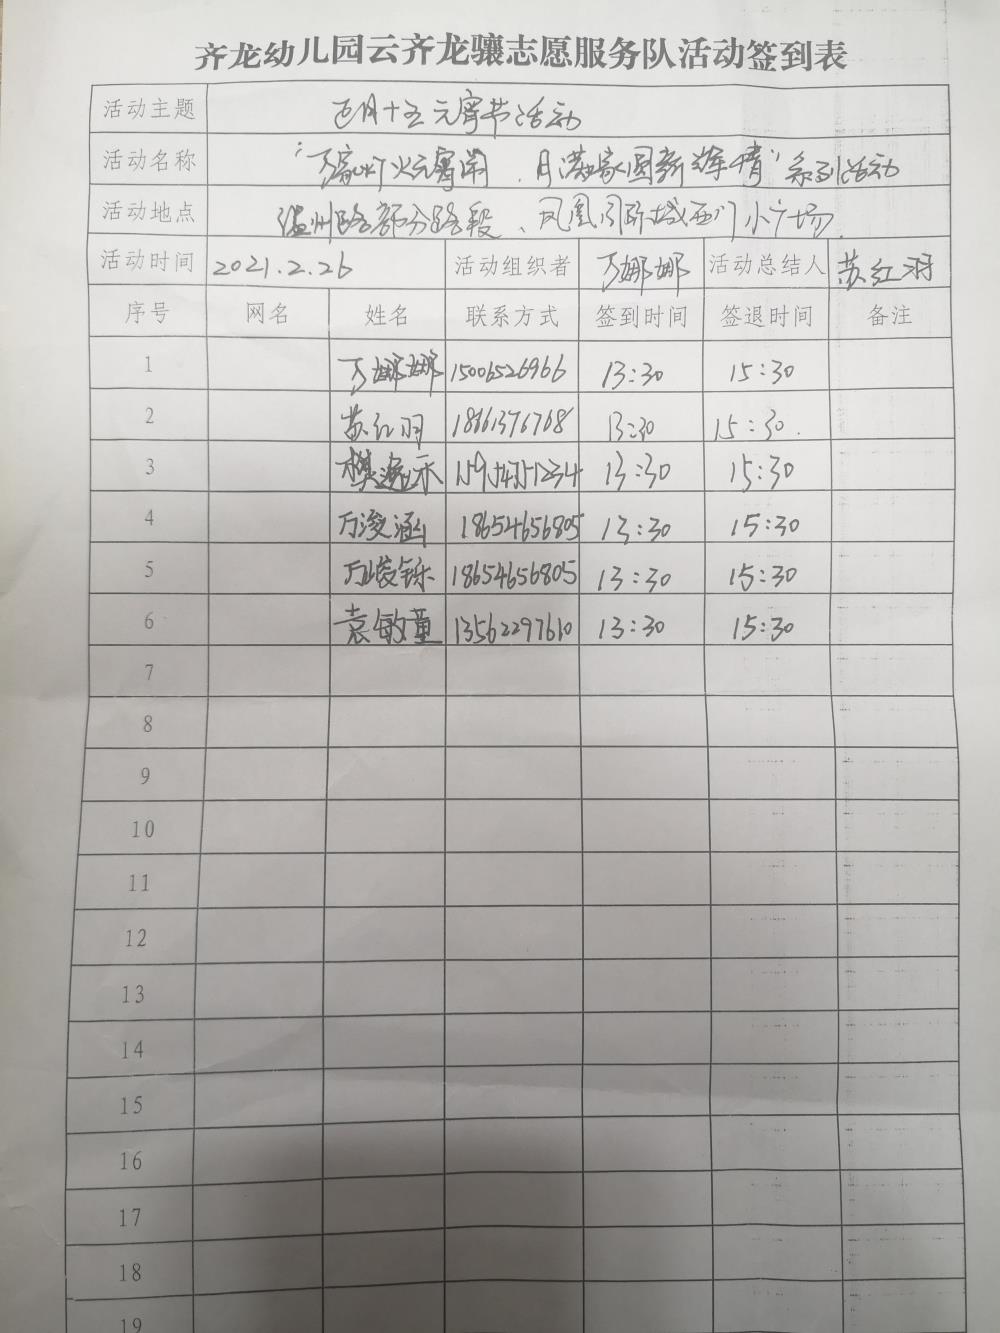 齐龙幼儿园云齐龙骧志愿服务队活动签到表
活动主题 正月十五元宵节活动
活动名称 "万家灯火元宵闹、月满家圆新辉情"系列活动
活动地点 温州路部分路段、凤凰国际城西门小广场
活动时间 2021.2.26 活动组织者 万娜娜 活动总结人 苏红羽
序号 网名 姓名 联系方式 签到时间 签退时间 备注
1 万娜娜 15006526966 13:30 15:30
2 苏红羽 18661376768 13:30 15:30.
3 樊逸禾 15954351234 13:30 15:30
4 万浚涵 18654656805 13:30 15:30
5 万峻铄 18654656805 13:30 15:30
6 袁敏童 13562297610 13:30 15:30
7
8
9
10
11
12
13
14
15
16
17
18
19